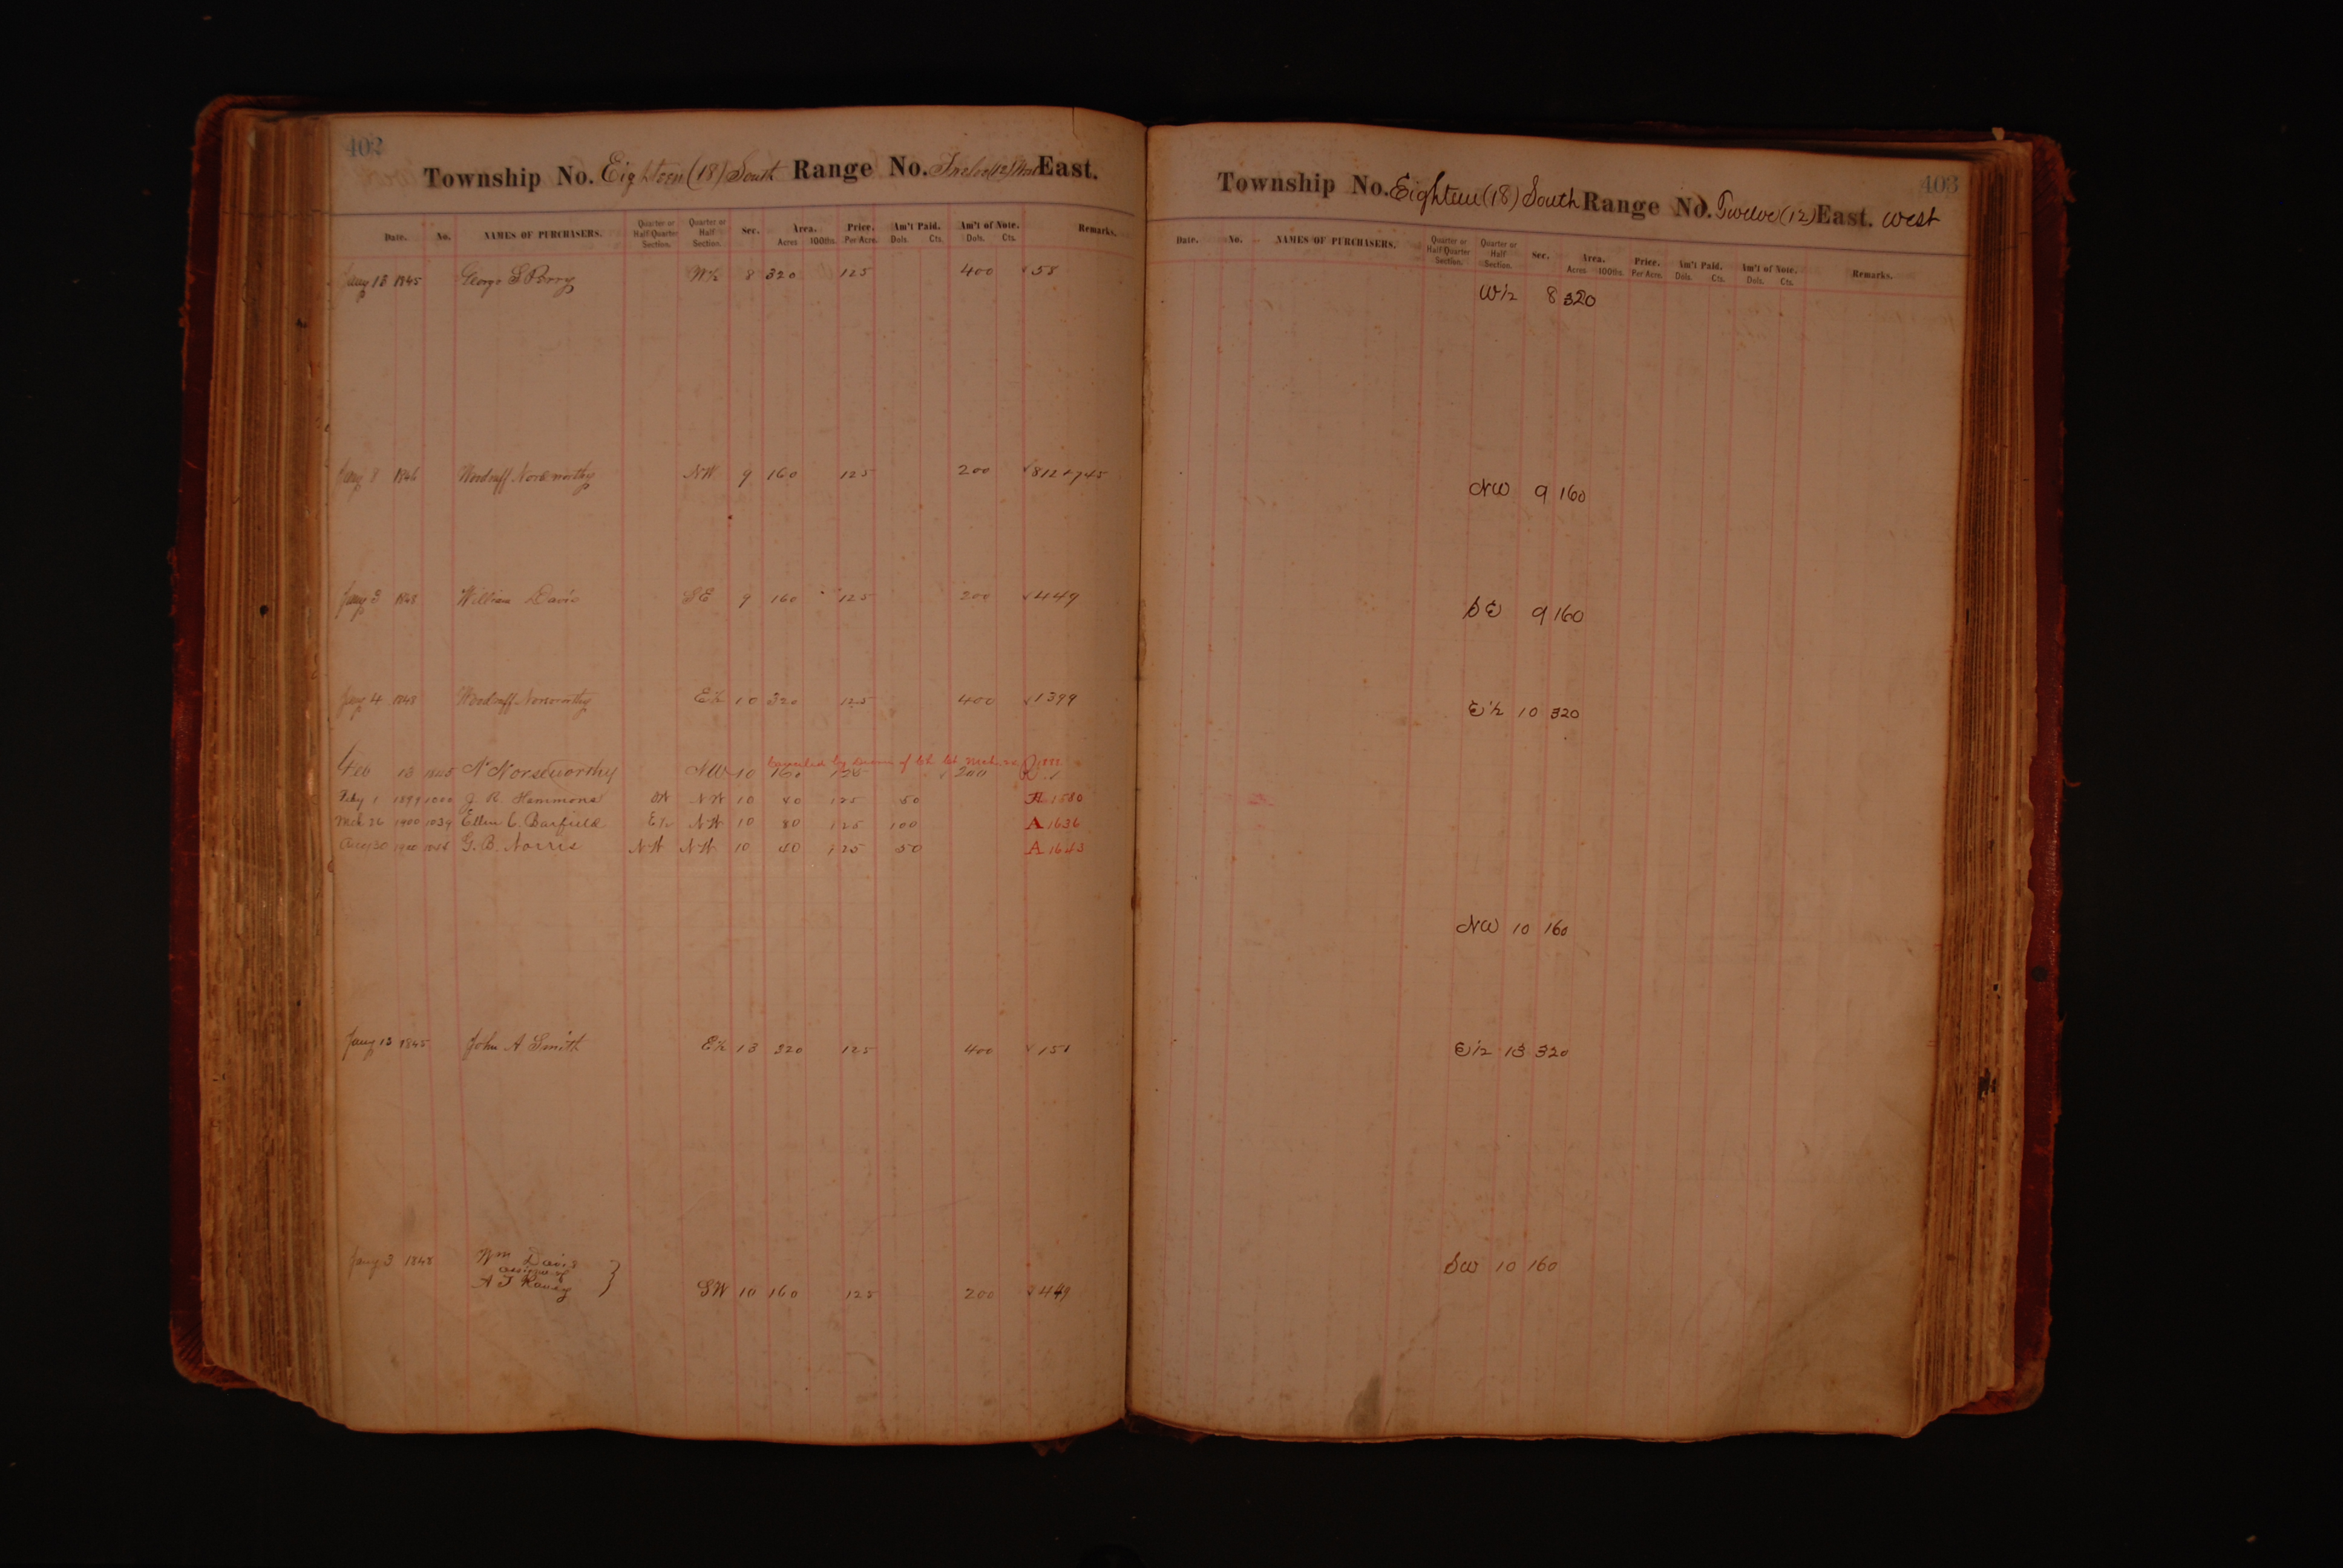 402
Township No. Eighteen (18) South Range No. Twelve (12) West East.
Date. No. NAMES OF PURCHASERS. Quarter or Half Quarter Section. Quarter or Half Section. Sec. Area. Acres 100ths. Price. Per Acre. Am't Paid. Dols. Cts. Am't of Note. Dols. Cts. Remarks.
Jany 13 1845 George S Perry W½ 8 320 125 400 58
Jany 8 1846 Woodruff Norseworthy NW 9 160 125 200 812 + 745
Jany 3 1848 William Davis SE 9 160 125 200 449
Jany 4 1848 Woodruff Norseworthy E½ 10 320 125 400 1399
Cancelled by
Feb 13 1845 N Norseworthy NW 10 160 125 200
Feby 1 1899 1000 J. R. Hammons SW NW 10 40 125 50 A 1580
Mch 26 1900 1039 Ellen C. Barfield E½ NW 10 80 125 100 A 1636
Aug 30 1900 G. B. Norris NW NW 10 40 125 50 A 1643
Jany 13 1845 John A Smith E½ 13 320 125 400 151
Jany 3 1848 Wm Davis
assignee of
A J
SW 10 160 125 200 449
403
Township No. Eighteen (18) South Range No. Twelve (12) East. West
Date. No. NAMES OF PURCHASERS. Quarter or Half Quarter Section. Quarter or Half Section. Sec. Area. Acres 100ths. Price. Per Acre. Am't Paid. Dols. Cts. Am't of Note. Dols. Cts. Remarks.
W½ 8 320
NW 9 160
SE 9 160
E½ 10 320
NW 10 160
E½ 13 320
SW 10 160